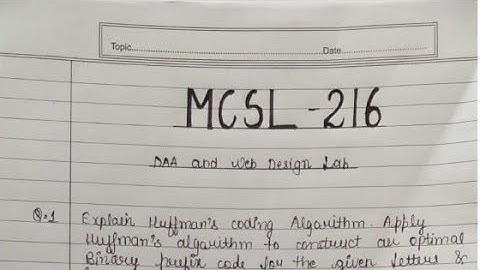 Topic
Date
MCSL-216
DAA and Web Design Lab
Q.1 Explain Huffman's coding Algorithm. Apply
Huffman's algorithm to construct an optimal
Binary prefix code for the given letters &